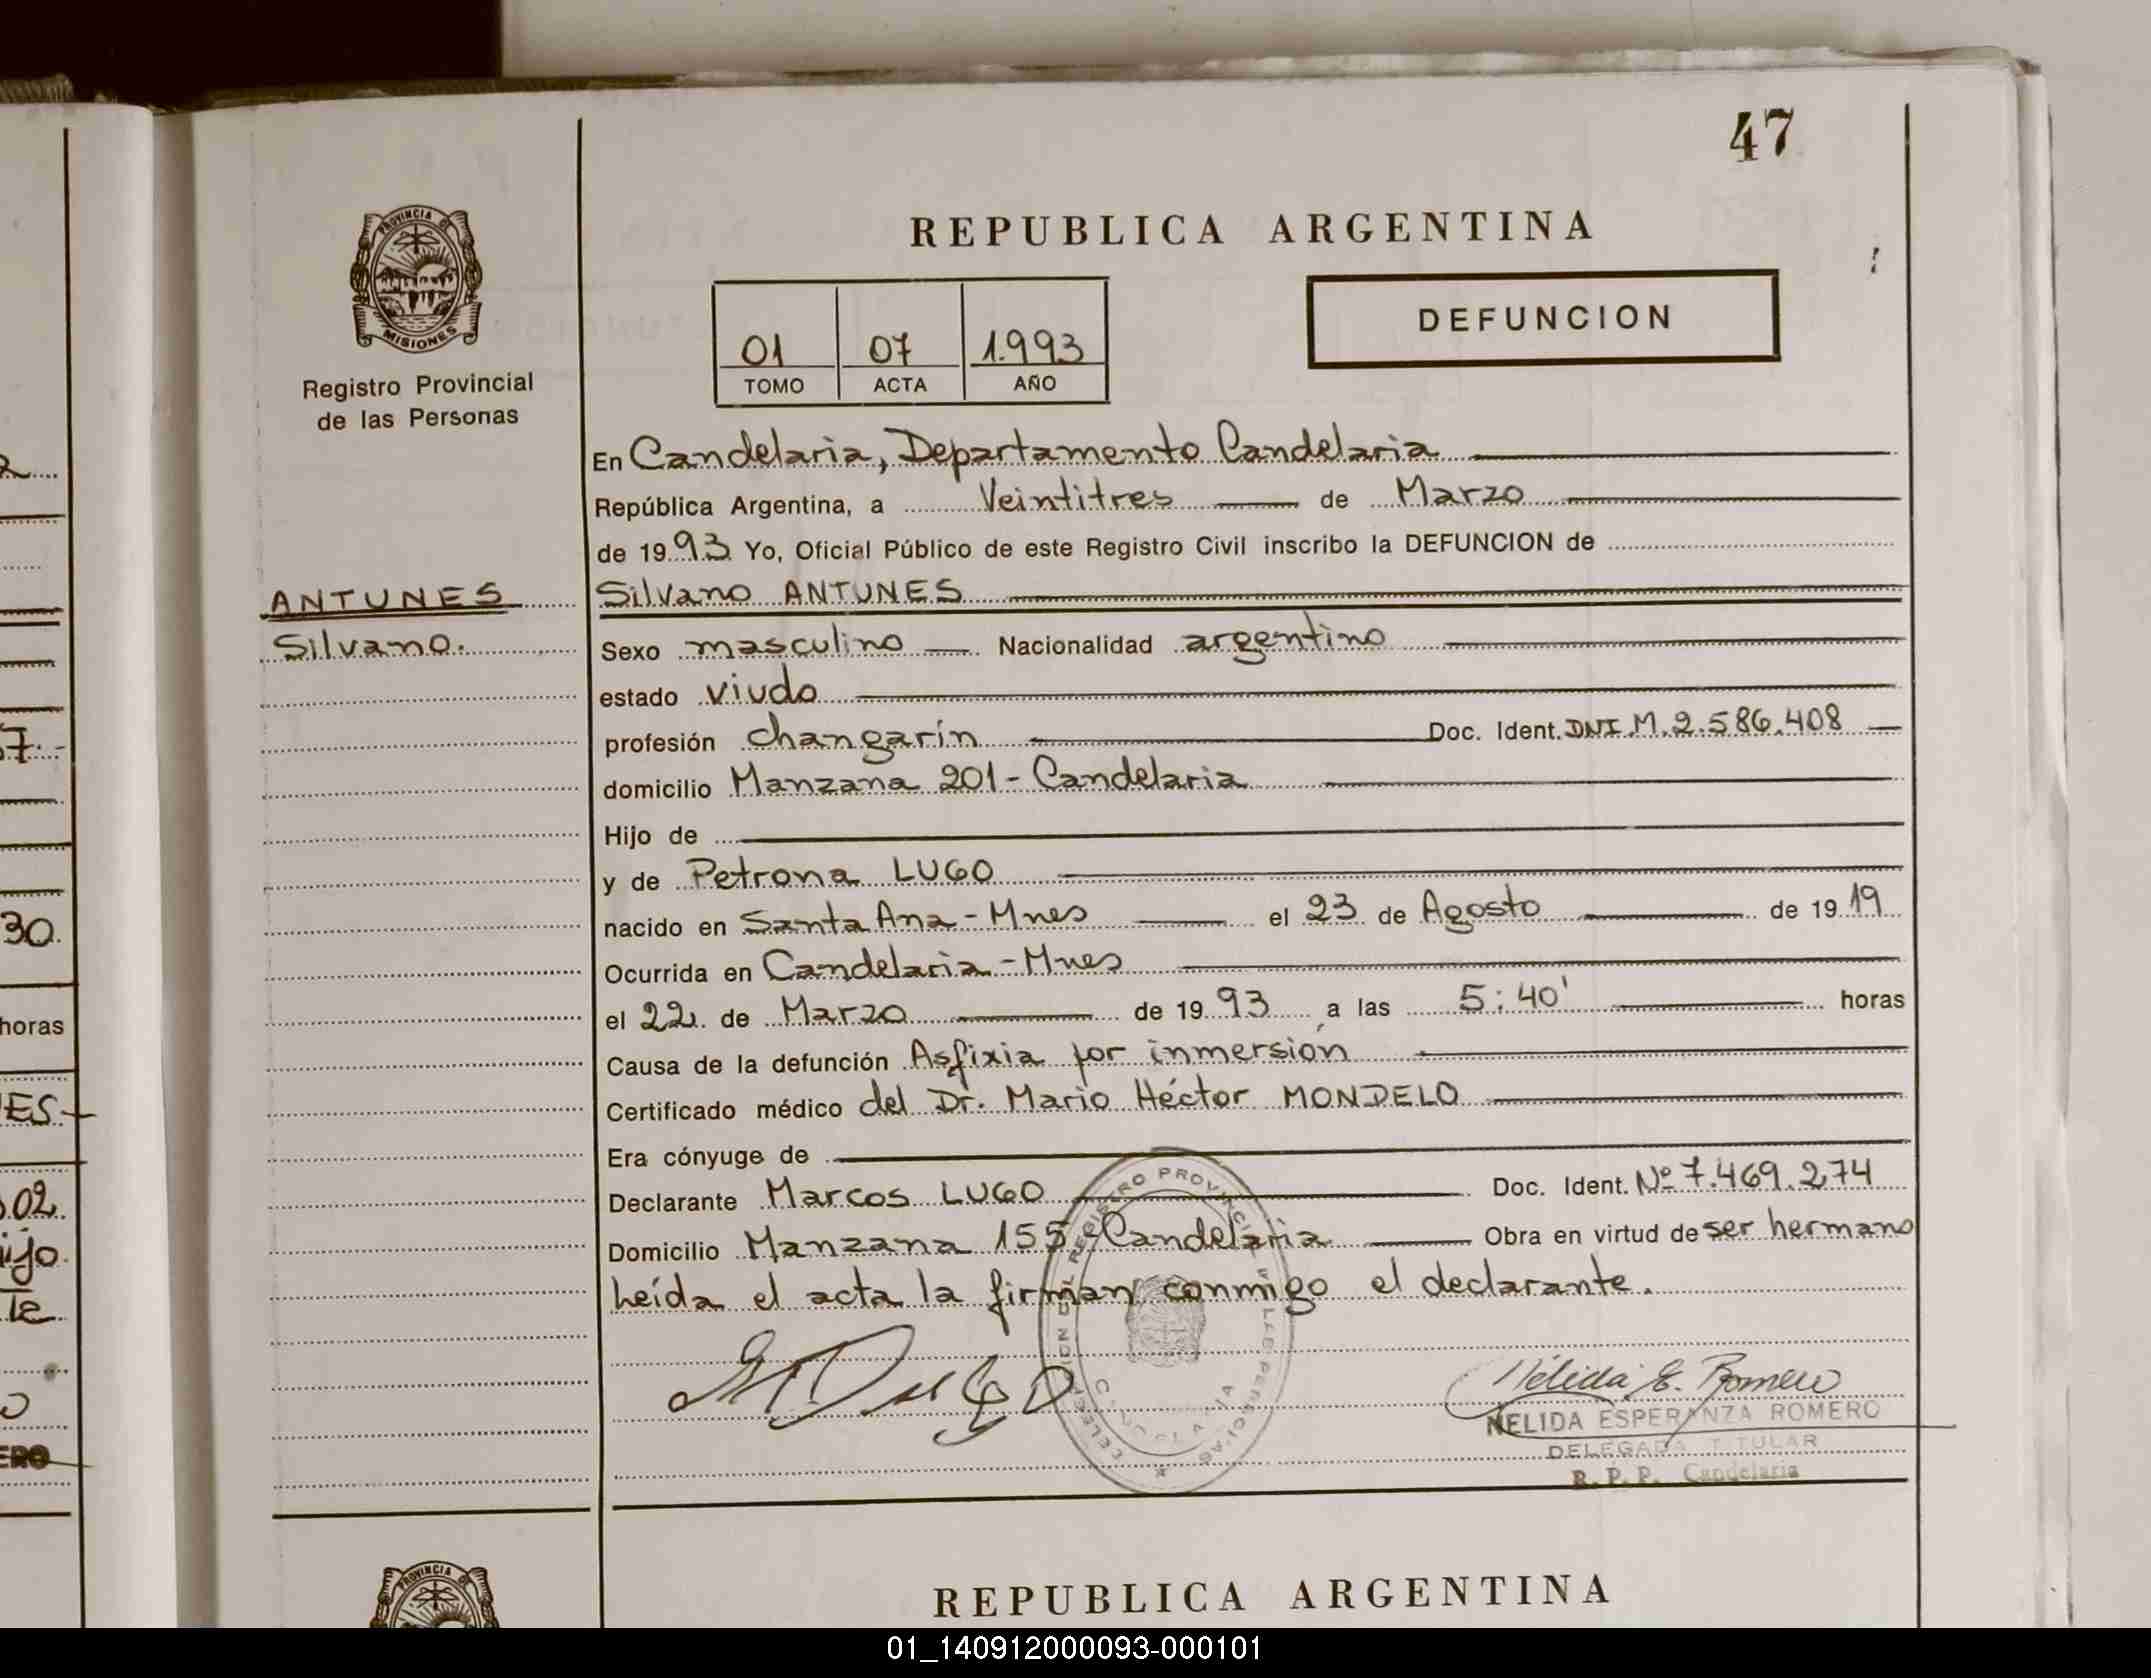 47
REPUBLICA ARGENTINA
PROVINCIA DE
MISIONES
Registro Provincial
de las Personas
01 07 1.993
TOMO ACTA AÑO
DEFUNCION
En Candelaria, Departamento Candelaria
República Argentina, a Veintitres de Marzo
de 1993 Yo, Oficial Público de este Registro Civil inscribo la DEFUNCION de
ANTUNES Silvano ANTUNES
Silvano. Sexo masculino Nacionalidad argentino
estado viudo
profesión changarín Doc. Ident. DNI.M.2.586.408
domicilio Manzana 201 - Candelaria
Hijo de
y de Petrona LUGO
nacido en Santa Ana - Mnes el 23 de Agosto de 1919
Ocurrida en Candelaria - Mnes
el 22 de Marzo de 1993 a las 5:40' horas
Causa de la defunción Asfixia por inmersión
Certificado médico del Dr. Mario Héctor MONDELO
Era cónyuge de
Declarante Marcos LUGO Doc. Ident. Nº 7.469.274
Domicilio Manzana 155 - Candelaria Obra en virtud de ser hermano
Leída el acta la firman conmigo el declarante.
Nélida E. Romero
NELIDA ESPERANZA ROMERO
DELEGADA TITULAR
R. P. P. Candelaria
30
horas
ES
02
ijo
te
ERO
PROVINCIA DE
REPUBLICA ARGENTINA
01_140912000093-000101